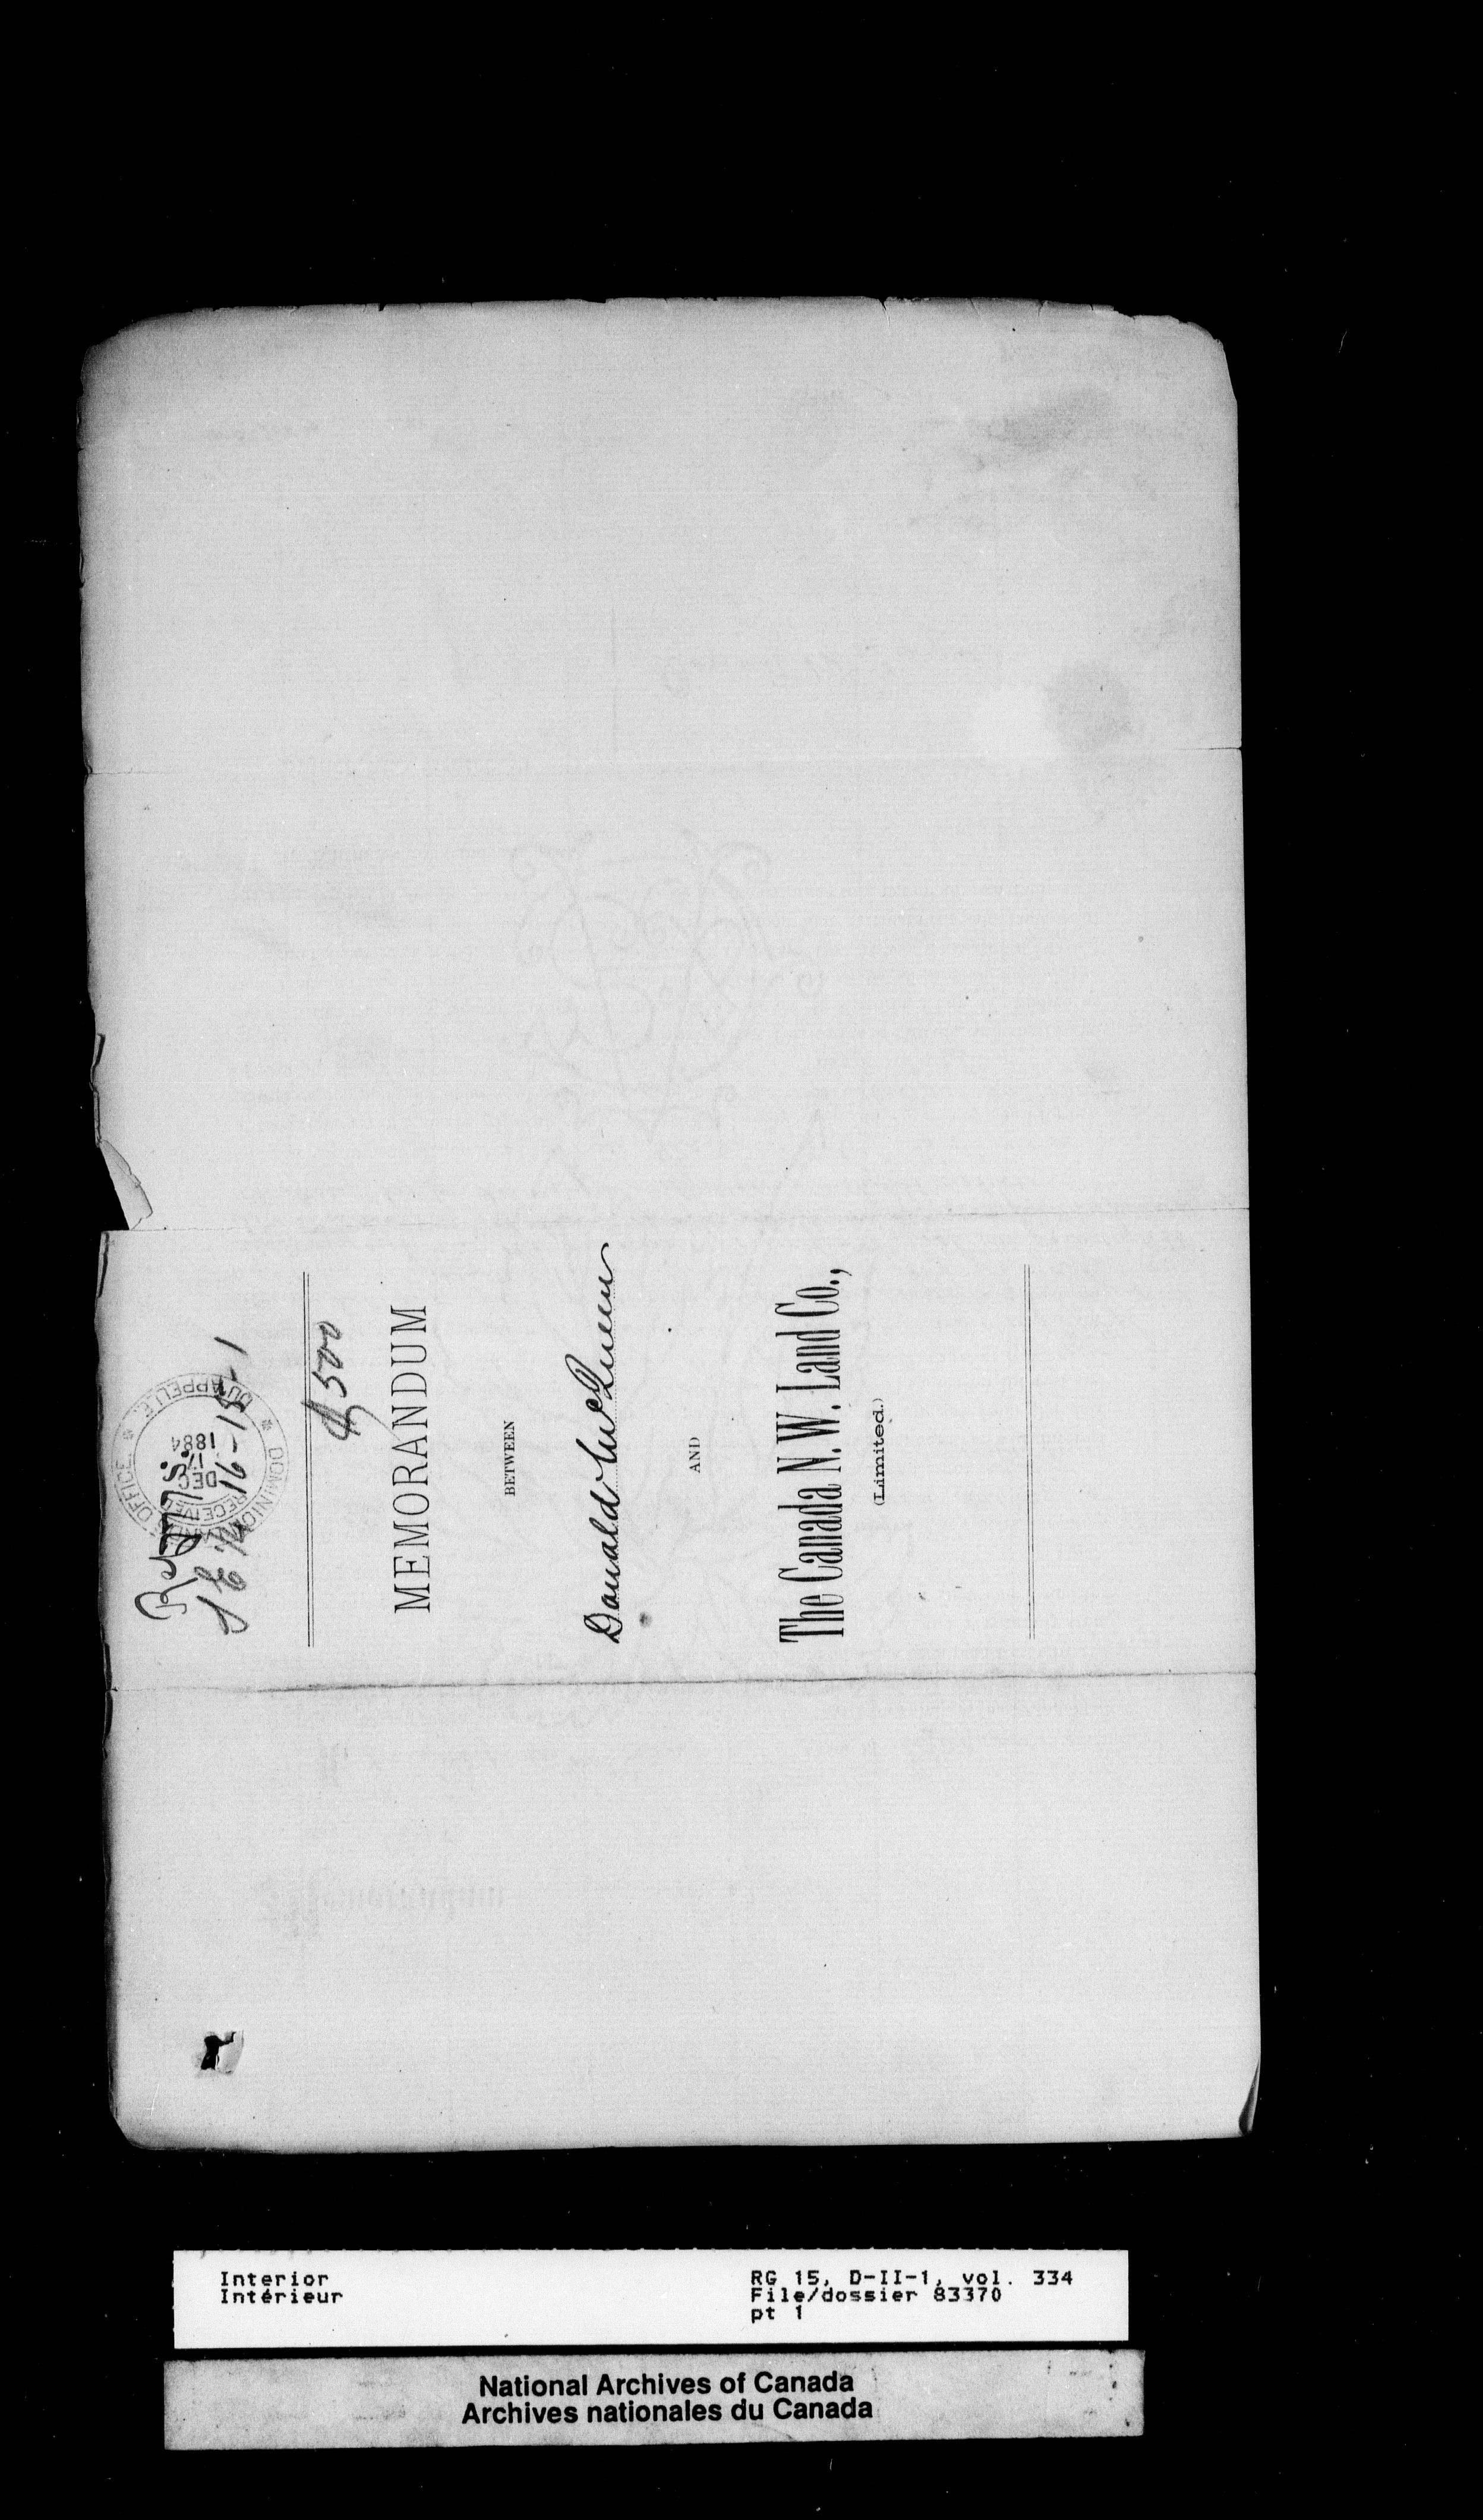 DOMINION LANDS OFFICE
QU'APPELLE
RECEIVED
DEC
17
1884
16-15-1
$500
MEMORANDUM
BETWEEN
Donald McQueen
AND
The Canada N.W. Land Co.,
(Limited.)
Interior
Intérieur
RG 15, D-II-1, vol. 334
File/dossier 83370
pt 1
National Archives of Canada
Archives nationales du Canada